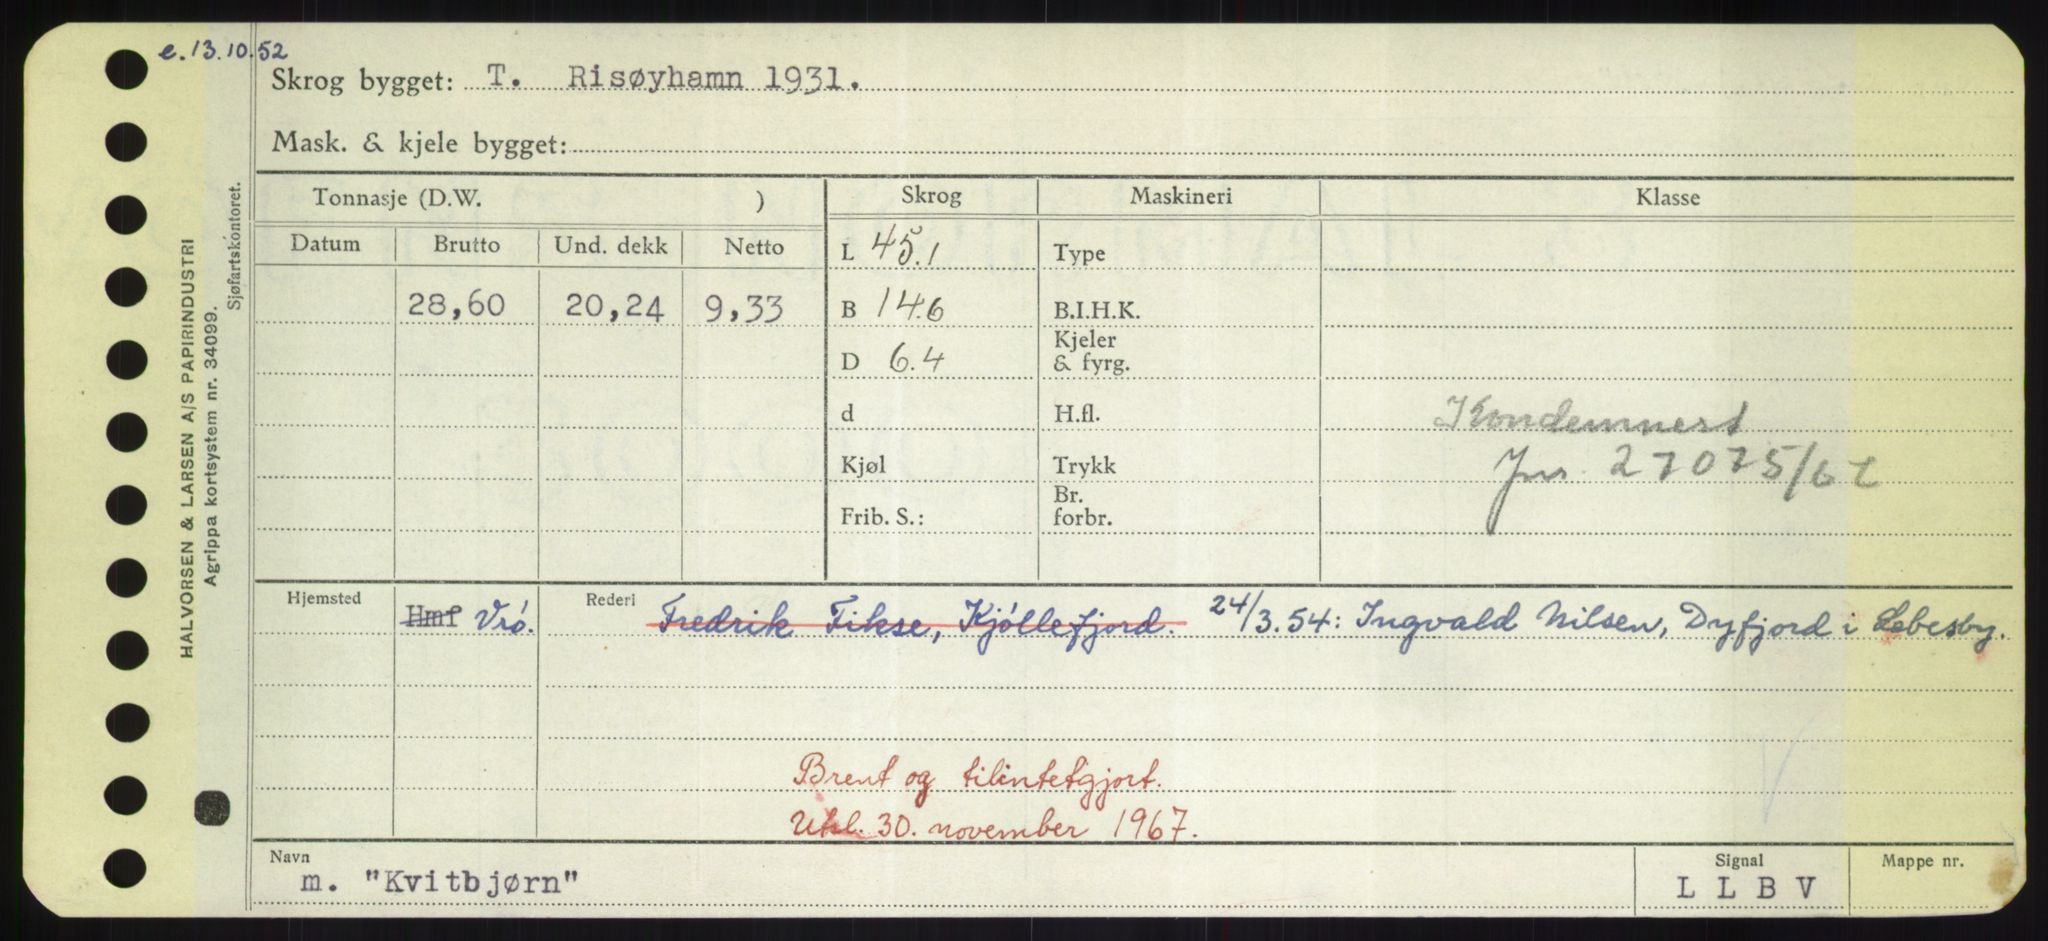 e. 13.10.52
Skrog bygget: T. Risøyhamn 1931.
Mask. & kjele bygget:
Tonnasje (D.W. )
Skrog
Maskineri
Klasse
Datum Brutto Und. dekk Netto
28,60 20,24 9,33
L 45.1
B 14.6
D 6.4
d
Kjøl
Frib. S.:
Type
B.I.H.K.
Kjeler
& fyrg.
H.fl.
Trykk
Br.
forbr.
Kondemnert
Jnr. 27075/67
Hjemsted
Rederi
Hmf Vrø. Fredrik Fikse, Kjøllefjord. 24/3.54: Ingvald Nilsen, Dyfjord i Lebesby.
Brent og tilintetgjort.
30. november 1967.
Navn
m. "Kvitbjørn"
Signal
L L B V
Mappe nr.
HALVORSEN & LARSEN A/S PAPIRINDUSTRI
Agrippa kortsystem nr. 34099.
Sjøfartskontoret.